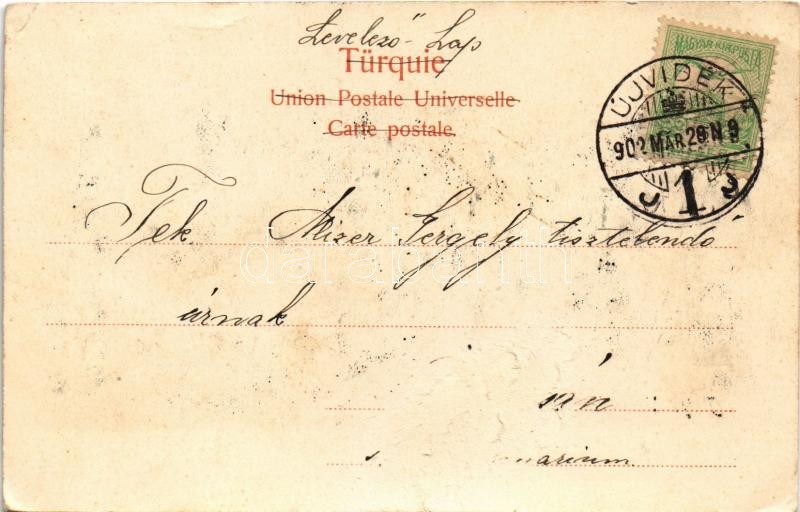 Levelező Lap
Türquie
Union Postale Universelle
Carte postale.
MAGYAR KIR. POSTA
ÚJVIDÉK
902 MÁR 29 N 9
1
Tek Mizer Gergely tisztelendő
úrnak